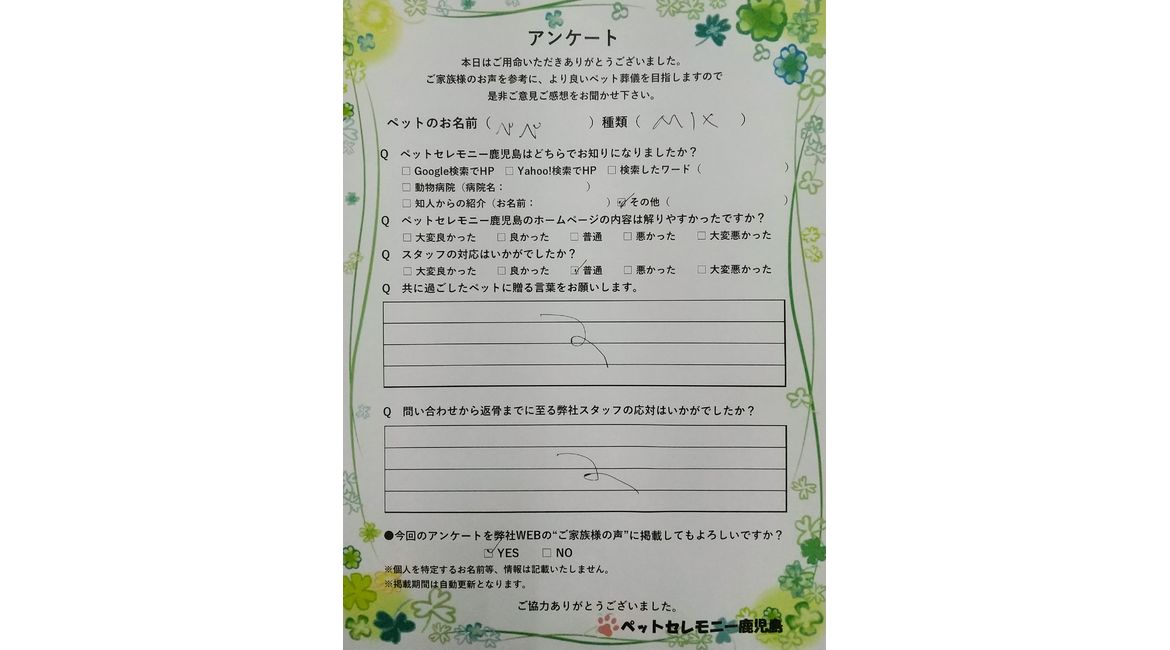 アンケート
本日はご用命いただきありがとうございました。
ご家族様のお声を参考に、より良いペット葬儀を目指しますので
是非ご意見ご感想をお聞かせ下さい。
ペットのお名前（ ）種類（ MIX ）
Q ペットセレモニー鹿児島はどちらでお知りになりましたか？
□ Google検索でHP □ Yahoo!検索でHP □ 検索したワード（ ）
□ 動物病院（病院名： ）
□ 知人からの紹介（お名前： ）☑ その他（ ）
Q ペットセレモニー鹿児島のホームページの内容は解りやすかったですか？
□ 大変良かった □ 良かった □ 普通 □ 悪かった □ 大変悪かった
Q スタッフの対応はいかがでしたか？
□ 大変良かった □ 良かった ☑ 普通 □ 悪かった □ 大変悪かった
Q 共に過ごしたペットに贈る言葉をお願いします。
Q 問い合わせから返骨までに至る弊社スタッフの応対はいかがでしたか？
●今回のアンケートを弊社WEBの“ご家族様の声”に掲載してもよろしいですか？
☑ YES □ NO
※個人を特定するお名前等、情報は記載いたしません。
※掲載期間は自動更新となります。
ご協力ありがとうございました。
ペットセレモニー鹿児島